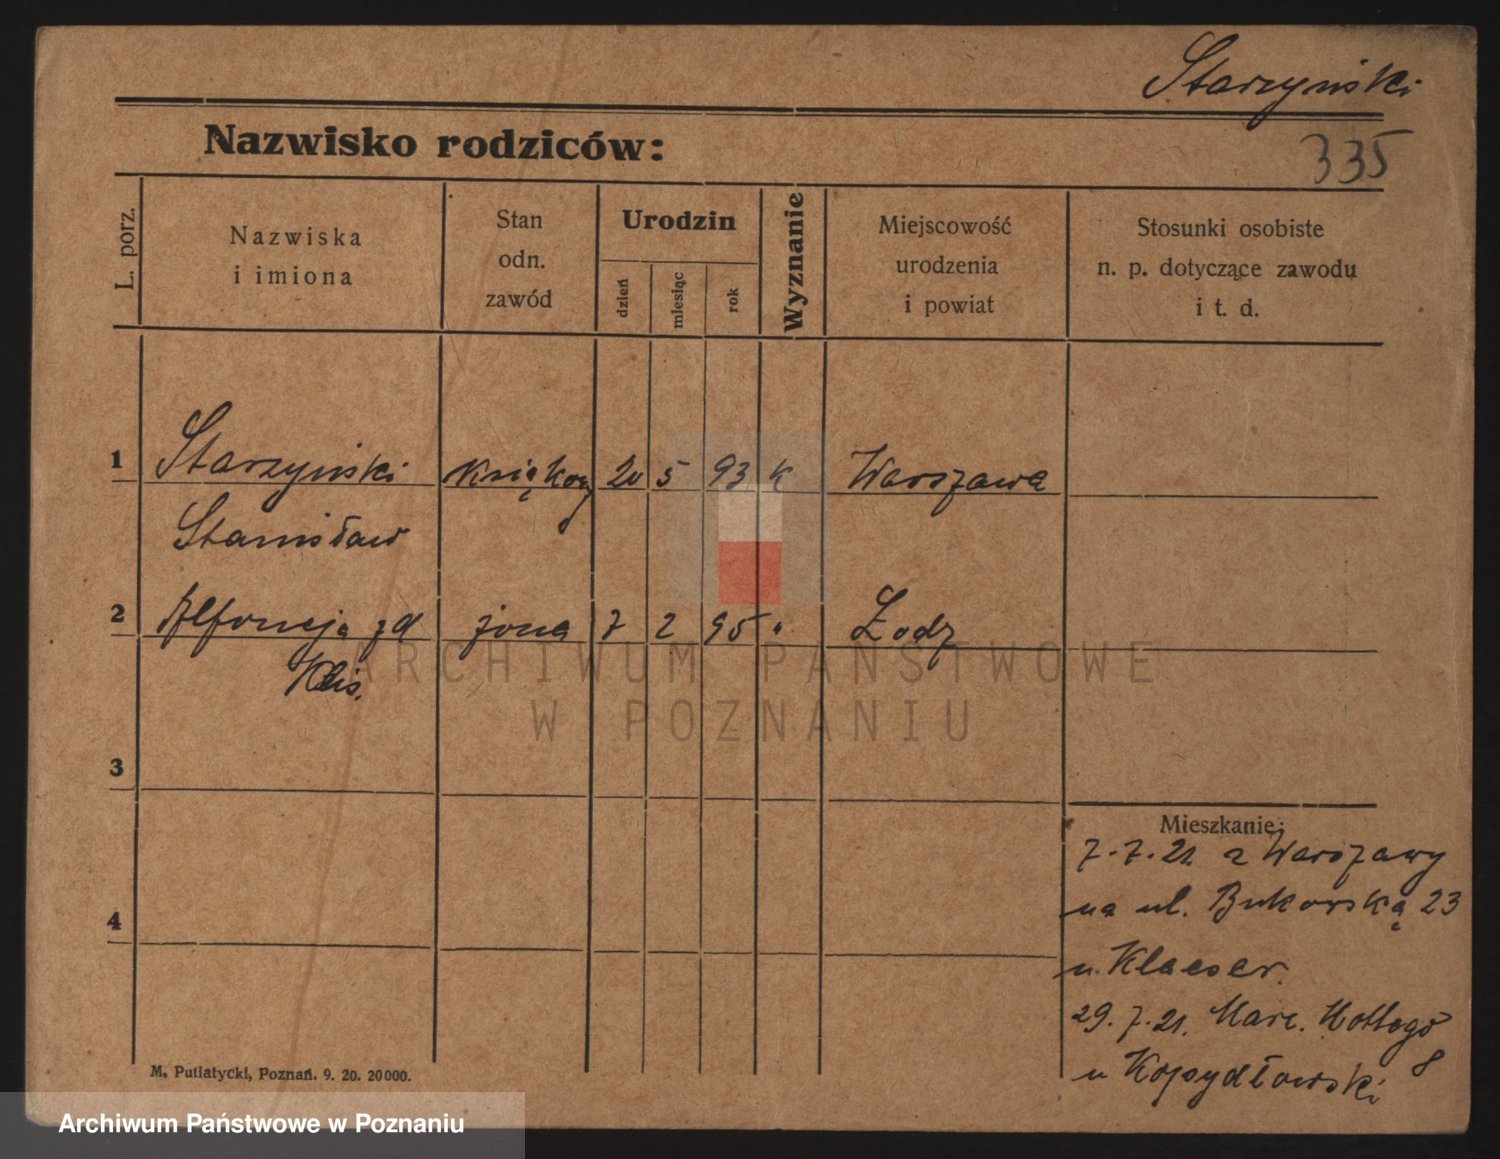 Starzyński
335
Nazwisko rodziców:
L. porz.
Nazwiska
i imiona
Stan
odn.
zawód
Urodzin
dzień
miesiąc
rok
Wyznanie
Miejscowość
urodzenia
i powiat
Stosunki osobiste
n. p. dotyczące zawodu
i t. d.
1 Starzyński 20 5 93 k Warszawa
Stanisław
2 żona 7 2 95 " Łodz
3
4
Mieszkanie:
7.7.21. z Warszawy
na ul. Bukowską 23
u.
29.7.21. Marc. Mottego
8
u Kopydłowski
M. Putiatycki, Poznań. 9. 20. 20 000.
ARCHIWUM PAŃSTWOWE
W POZNANIU
Archiwum Państwowe w Poznaniu